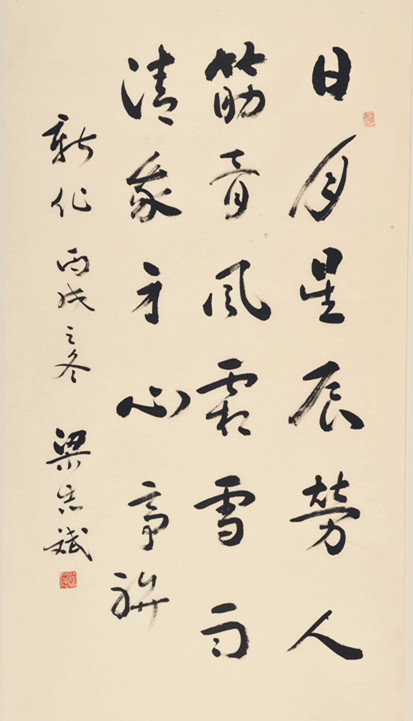 日月星辰劳人
筋骨风霜雪雨
清我身心亭
新作 丙戌之冬 梁志斌